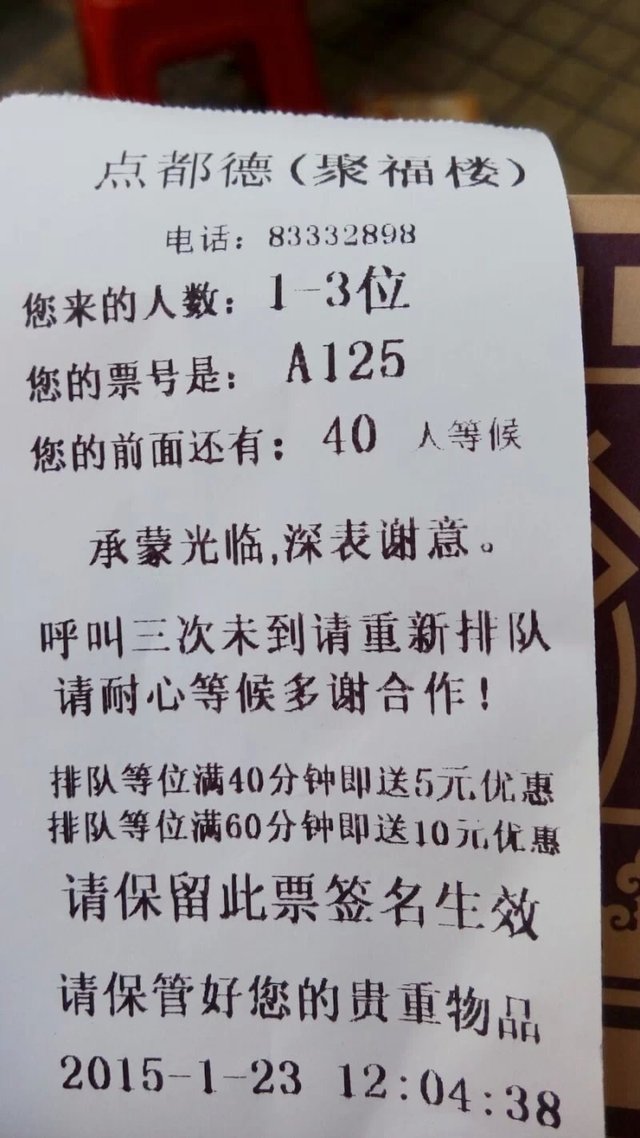 点都德(聚福楼)
电话：83332898
您来的人数：1-3位
您的票号是：A125
您的前面还有：40 人等候
承蒙光临,深表谢意。
呼叫三次未到请重新排队
请耐心等候多谢合作！
排队等位满40分钟即送5元优惠
排队等位满60分钟即送10元优惠
请保留此票签名生效
请保管好您的贵重物品
2015-1-23 12:04:38